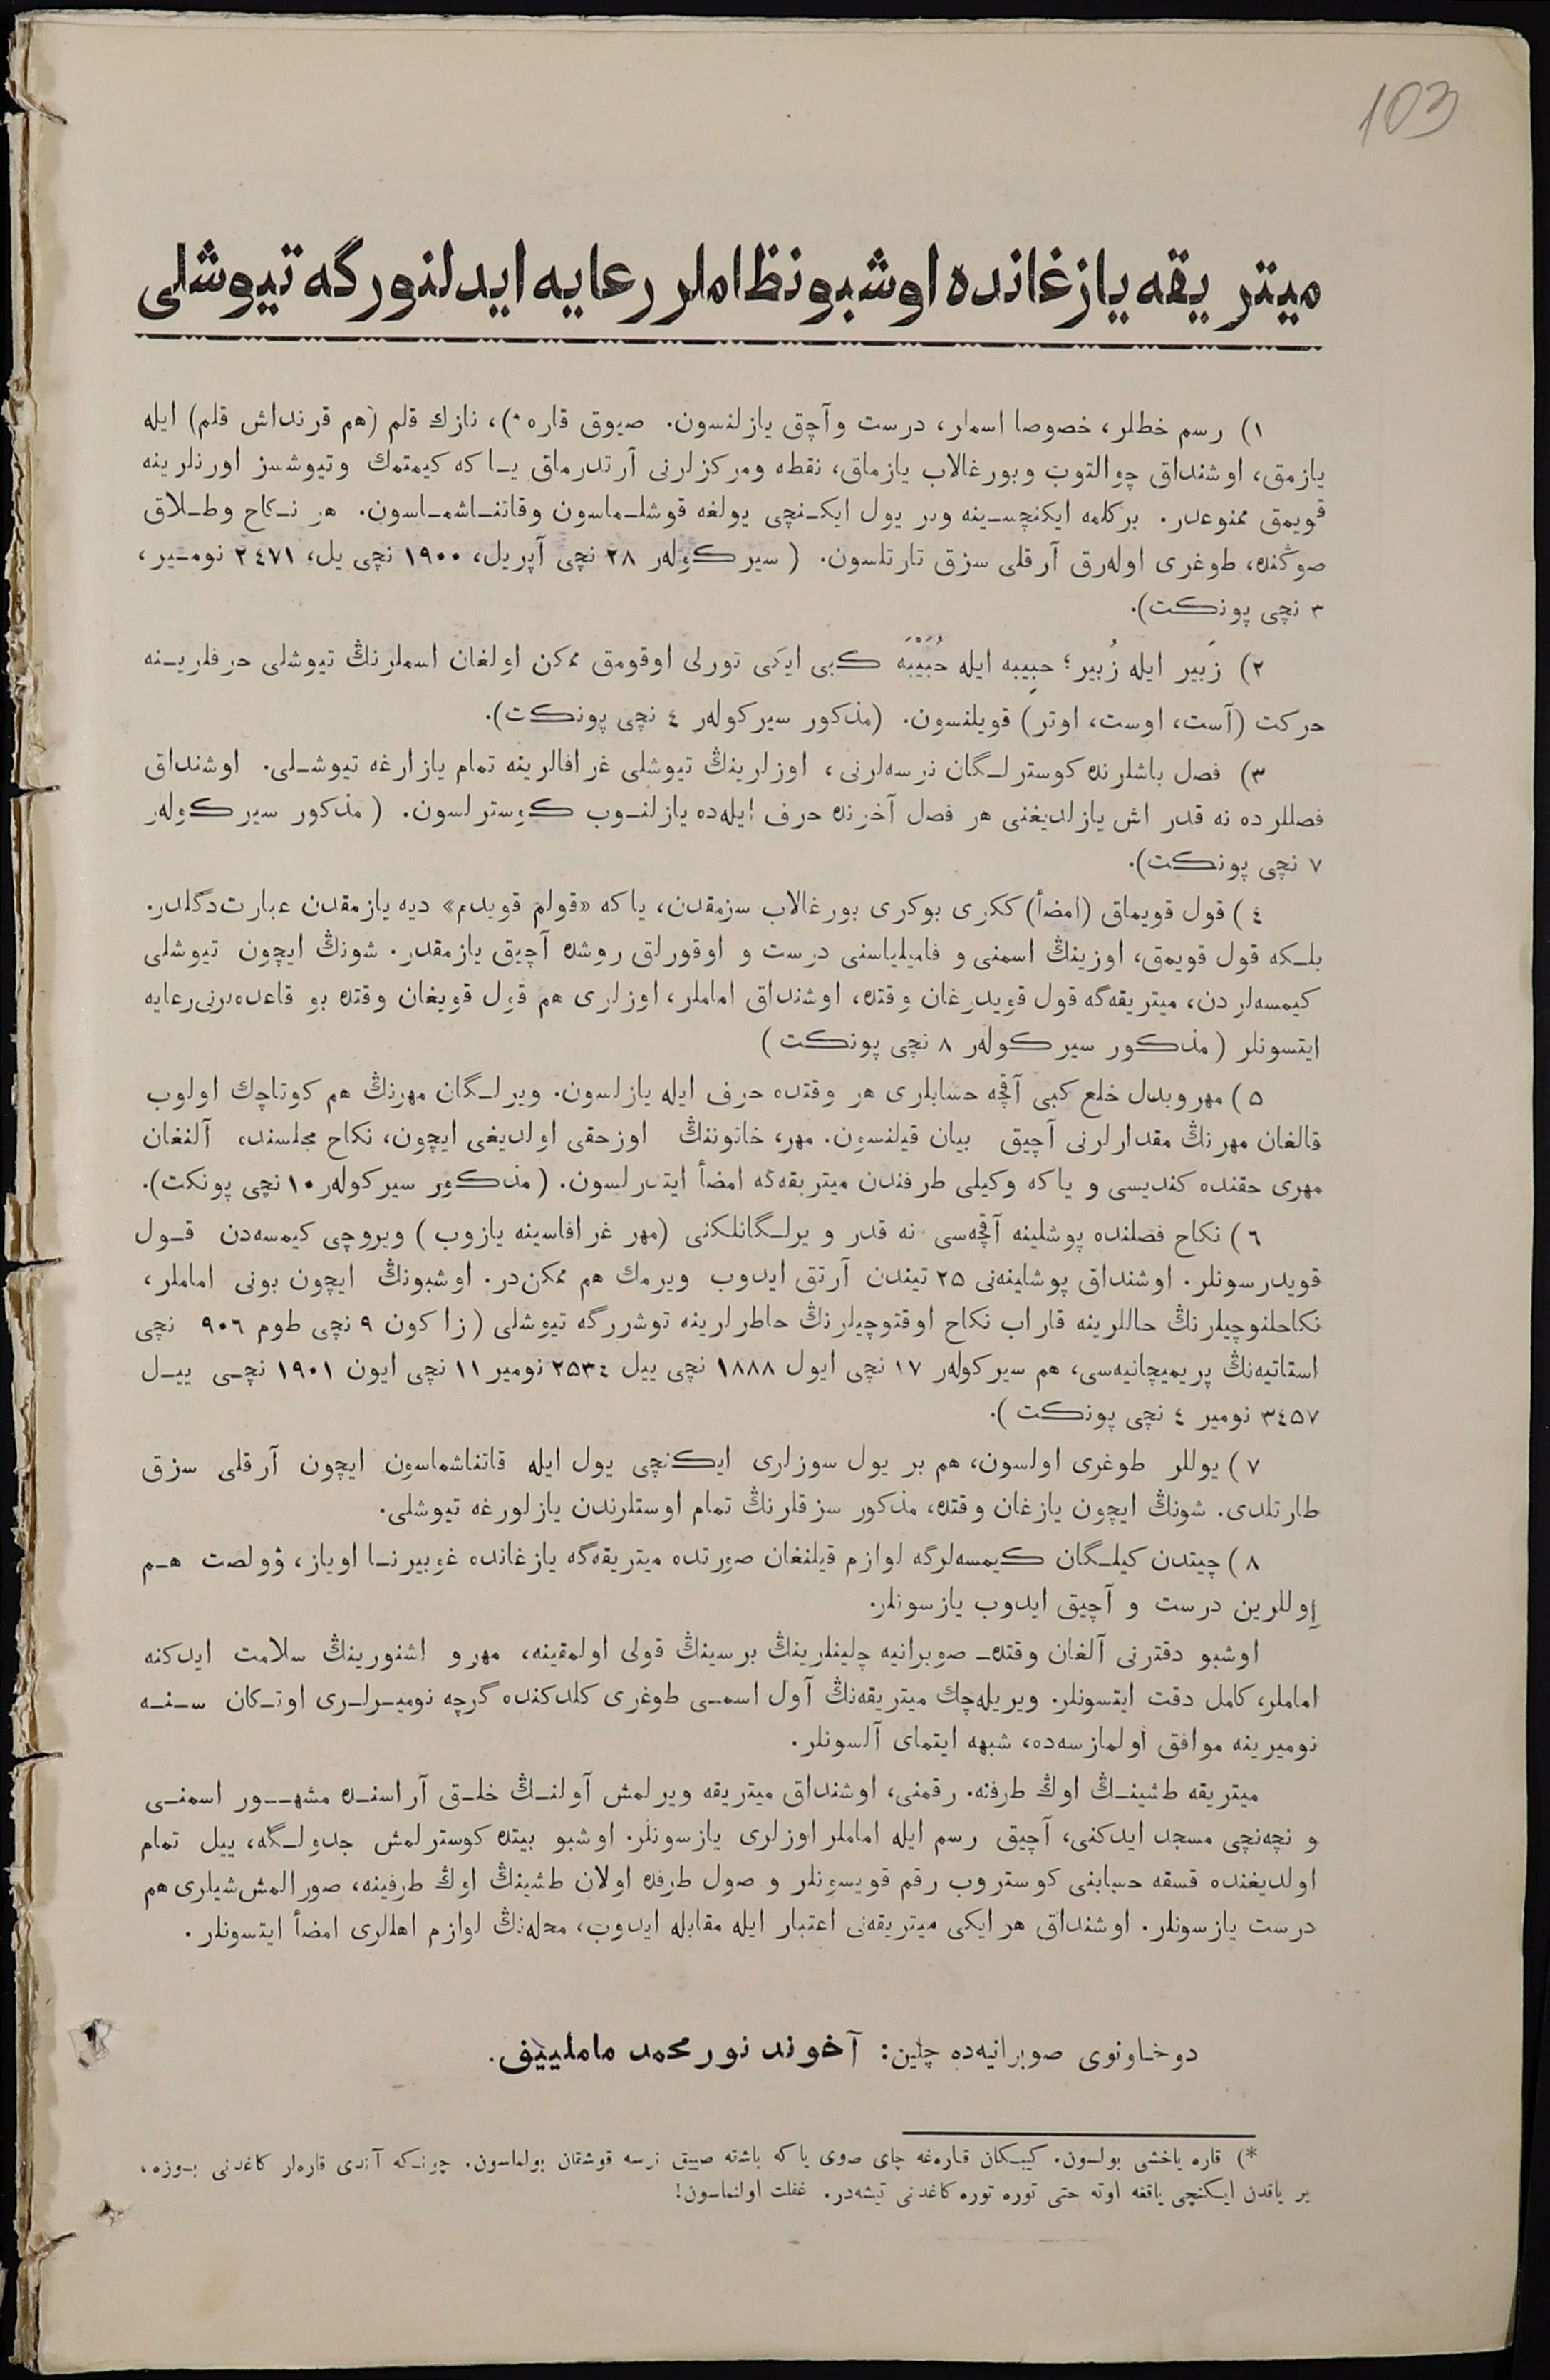 103
میتریقه یازغانده اوشبو نظاملر رعایه ایدلنورگه تیوشلی
١) رسم خطلر، خصوصا اسملر، درست وآچق یازلنسون. صیوق قاره *)، نازك قلم (هم قرنداش قلم) ایله
یازمق، اوشنداق چوالتوب وبورغالاب یازماق، نقطه ومرکزلرنی آرتدرماق یـاکه کیمتمك وتیوشسز اورنلرینه
قویمق ممنوعدر. برکلمه ایکنچسـینه وبر یول ایکـنچی یولغه قوشلـماسون وقاتنـاشمـاسون. هر نـکاح وطـلاق
صوڭنده، طوغری اولەرق آرقلی سزق تارتلسون. (سیرکولەر ٢٨ نچی آپریل، ١٩٠٠ نچی یل، ٢٤٧١ نومـیر،
٣ نچی پونکت).
٢) زَبیر ایله زُبیر؛ حبِیبه ایله حُبَیْبَه کبی ایکی تورلی اوقومق ممکن اولغان اسملرنڭ تیوشلی حرفلریـنه
حرکت (آست، اوست، اوتر) قویلنسون. (مذکور سیرکولەر ٤ نچی پونکت).
٣) فصل باشلرنده کوسترلـگان نرسەلرنی، اوزلرینڭ تیوشلی غرافالرینه تمام یازارغه تیوشـلی. اوشنداق
فصللرده نه قدر اش یازلدیغنی هر فصل آخرنده حرف ایلەده یازلنـوب کوسترلسون. (مذکور سیرکولەر
٧ نچی پونکت).
٤) قول قویماق (امضأ) ککری بوکری بورغالاب سزمقدن، یاکه «قولم قویدم» دیه یازمقدن عبارت دگلدر.
بلـکه قول قویمق، اوزینڭ اسمنی و فامیلیاسنی درست و اوقورلق روشده آچیق یازمقدر. شونڭ ایچون تیوشلی
کیمسەلردن، میتریقەگه قول قویدرغان وقتده، اوشنداق اماملر، اوزلری هم قول قویغان وقتده بو قاعدەلرنی رعایه
ایتسونلر (مذکور سیرکولەر ٨ نچی پونکت)
٥) مهر وبدل خلع کبی آقچه حسابلری هر وقتده حرف ایله یازلسون. ویرلـگان مهرنڭ هم کوتاچك اولوب
قالغان مهرنڭ مقدارلرنی آچیق بیان قیلنسون. مهر، خاتوننڭ اوز حقی اولدیغی ایچون، نکاح مجلسنده آلنغان
مهری حقنده کندیسی و یاکه وکیلی طرفندن میتریقەگه امضأ ایتدرلسون. (مذکور سیرکولەر ١٠ نچی پونکت).
٦) نکاح فصلنده پوشلینه آقچەسی نه قدر ویرلـگانلکنی (مهر غرافاسینه یازوب) ویروچی کیمسەدن قـول
قویدرسونلر. اوشنداق پوشلینەنی ٢٥ تیندن آرتق ایدوب ویرمك هم ممکن‌در. اوشبونڭ ایچون بونی اماملر،
نکاحلنوچیلرنڭ حاللرینه قاراب نکاح اوقتوچیلرنڭ خاطرلرینه توشررگه تیوشلی (زاکون ٩ نچی طوم ٩٠٦ نچی
استاتیەنڭ پریمیچانیەسی، هم سیرکولەر ١٧ نچی ایول ١٨٨٨ نچی ییل ٢٥٣٤ نومیر ١١ نچی ایون ١٩٠١ نچـی ییـل
٣٤٥٧ نومیر ٤ نچی پونکت).
٧) یوللر طوغری اولسون، هم بر یول سوزلری ایکنچی یول ایله قاتناشماسون ایچون آرقلی سزق
طارتلدی. شونڭ ایچون یازغان وقتده، مذکور سزقلرنڭ تمام اوستلرندن یازلورغه تیوشلی.
٨) چیتدن کیلـگان کیمسەلرگه لوازم قیلنغان صورتده میتریقەگه یازغانده غوبیرنـا اویاز، ۋولصت هـم
اٟوللرین درست و آچیق ایدوب یازسونلر.
اوشبو دفترنی آلغان وقتده صوبرانیه چلینلرینڭ برسینڭ قولی اولمقینه، مهر و اشنورینڭ سلامت ایدکنه
اماملر، کامل دقت ایتسونلر. ویریلەچك میتریقەنڭ آول اسمـی طوغری کلدکنده گرچه نومیـرلـری اوتـکان سـنـه
نومیرینه موافق اولمازسەده، شبهه ایتمای آلسونلر.
میتریقه طشینـڭ اوڭ طرفنه. رقمنی، اوشنداق میتریقه ویرلمش آولنـڭ خلـق آراسنـده مشهــور اسمنـی
و نچەنچی مسجد ایدکنی، آچیق رسم ایله اماملر اوزلری یازسونلر. اوشبو بیتده کوسترلمش جدولـگه، ییل تمام
اولدیغنده قسقه حسابنی کوستروب رقم قویسونلر و صول طرفده اولان طشینڭ اوڭ طرفینه، صورالمش شیلری هم
درست یازسونلر. اوشنداق هر ایکی میتریقەنی اعتبار ایله مقابله ایدوب، محلەنڭ لوازم اهللری امضأ ایتسونلر.
دوخاونوی صوبرانیەده چلین: آخوند نور محمد ماملییف.
*) قاره یاخشی بولسون. کیبـکان قارەغه چای صوی یاکه باشته صییق نرسه قوشقان بولماسون. چونـکه آندی قارەلر کاغدنی بـوزه،
بر یاقدن ایـکنچی یاقغه اوته حتی توره توره کاغدنی تیشەدر. غفلت اولنماسون!